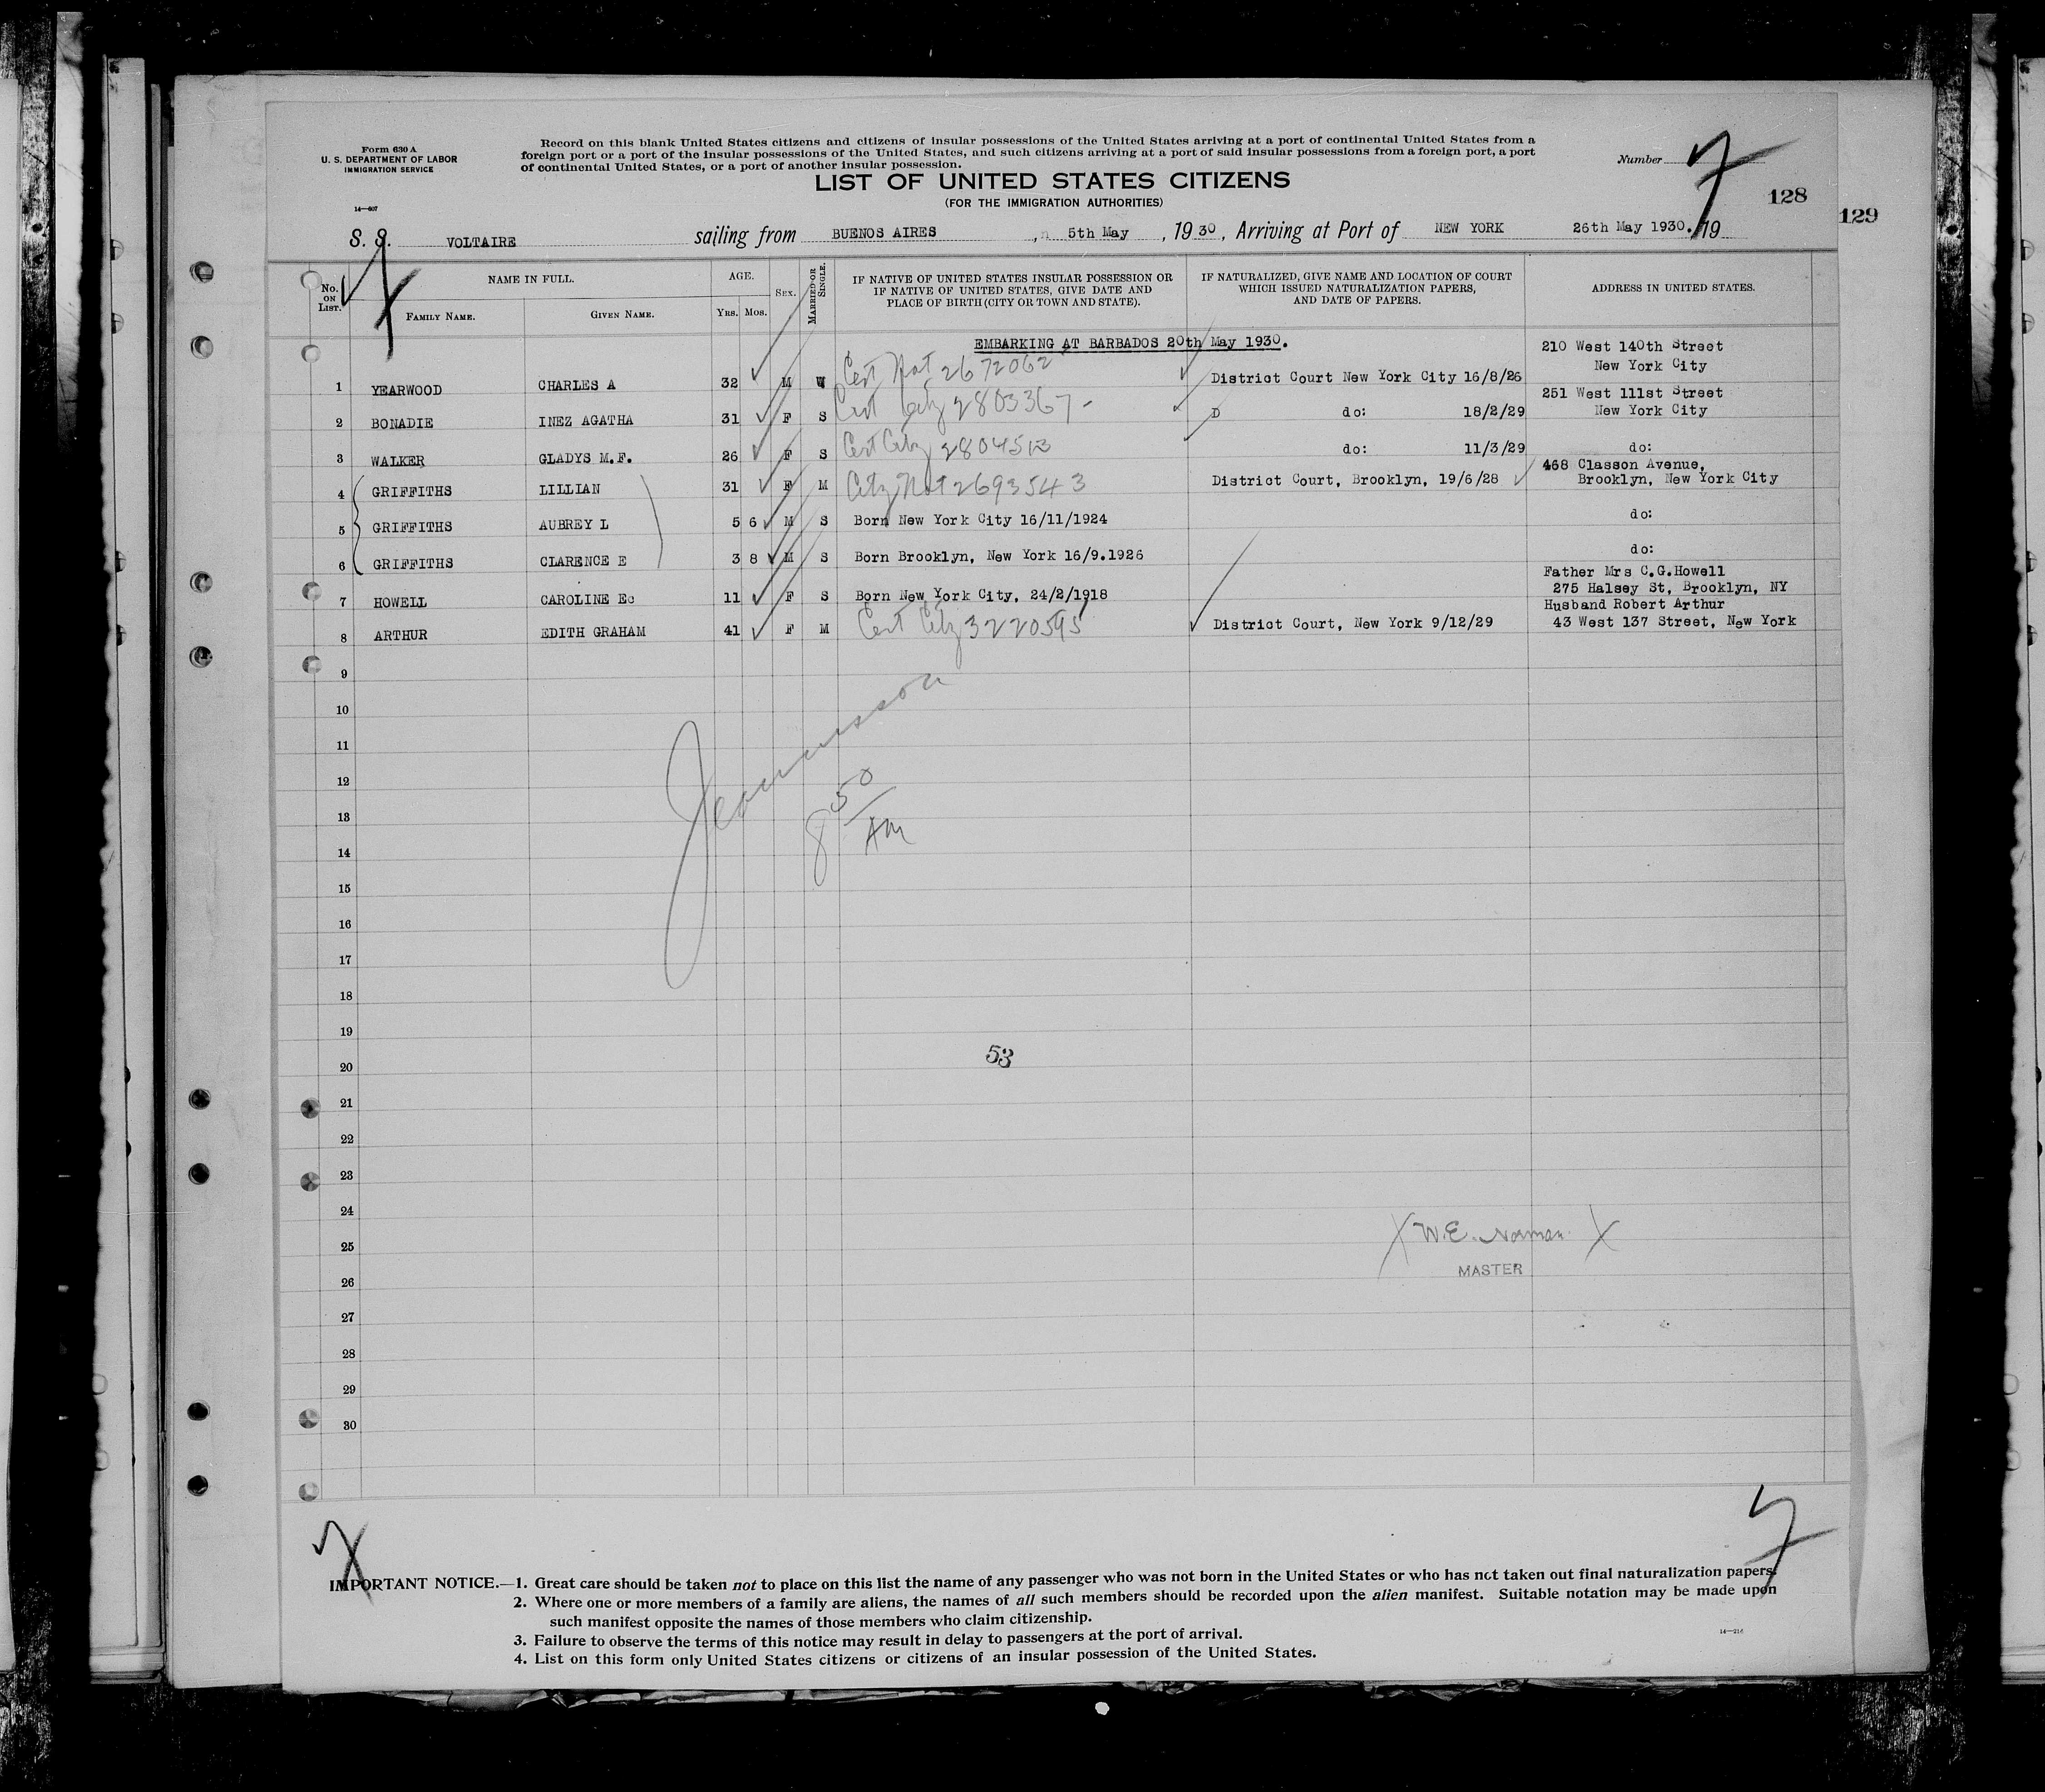 Form 630 A
U. S. DEPARTMENT OF LABOR
IMMIGRATION SERVICE
14—607
Record on this blank United States citizens and citizens of insular possessions of the United States arriving at a port of continental United States from a
foreign port or a port of the insular possessions of the United States, and such citizens arriving at a port of said insular possessions from a foreign port, a port
of continental United States, or a port of another insular possession.
Number 7
128
129
LIST OF UNITED STATES CITIZENS
(FOR THE IMMIGRATION AUTHORITIES)
S. S. VOLTAIRE sailing from BUENOS AIRES, 5th May, 1930, Arriving at Port of NEW YORK 26th May 1930. 19
No. ON LIST. NAME IN FULL. FAMILY NAME. GIVEN NAME. AGE. YRS. MOS. SEX. MARRIED OR SINGLE. IF NATIVE OF UNITED STATES INSULAR POSSESSION OR IF NATIVE OF UNITED STATES, GIVE DATE AND PLACE OF BIRTH (CITY OR TOWN AND STATE). IF NATURALIZED, GIVE NAME AND LOCATION OF COURT WHICH ISSUED NATURALIZATION PAPERS, AND DATE OF PAPERS. ADDRESS IN UNITED STATES.
EMBARKING AT BARBADOS 20th May 1930.
210 West 140th Street
New York City
1 YEARWOOD CHARLES A 32 M Cert Nat 2672062 District Court New York City 16/8/26
251 West 111st Street
2 BONADIE INEZ AGATHA 31 F S Cert Citz 2803367- D do: 18/2/29 New York City
3 WALKER GLADYS M.F. 26 F S Cert Citz do: 11/3/29 do:
468 Classon Avenue,
4 GRIFFITHS LILLIAN 31 F M Citz Nat 2693543 District Court, Brooklyn, 19/6/28 Brooklyn, New York City
5 GRIFFITHS AUBREY L 5 6 M S Born New York City 16/11/1924 do:
6 GRIFFITHS CLARENCE E 3 8 M S Born Brooklyn, New York 16/9.1926 do:
Father Mrs C.G.Howell
7 HOWELL CAROLINE Ec 11 F S Born New York City, 24/2/1918 275 Halsey St, Brooklyn, NY
Husband Robert Arthur
8 ARTHUR EDITH GRAHAM 41 F M Cert Citz 3220595 District Court, New York 9/12/29 43 West 137 Street, New York
9
10
11
12
8 50 AM
13
14
15
16
17
18
19
53
20
21
22
23
24
W.E. Norman
25
MASTER
26
27
28
29
30
IMPORTANT NOTICE.—1. Great care should be taken not to place on this list the name of any passenger who was not born in the United States or who has not taken out final naturalization papers.
2. Where one or more members of a family are aliens, the names of all such members should be recorded upon the alien manifest. Suitable notation may be made upon
such manifest opposite the names of those members who claim citizenship.
3. Failure to observe the terms of this notice may result in delay to passengers at the port of arrival.
4. List on this form only United States citizens or citizens of an insular possession of the United States.